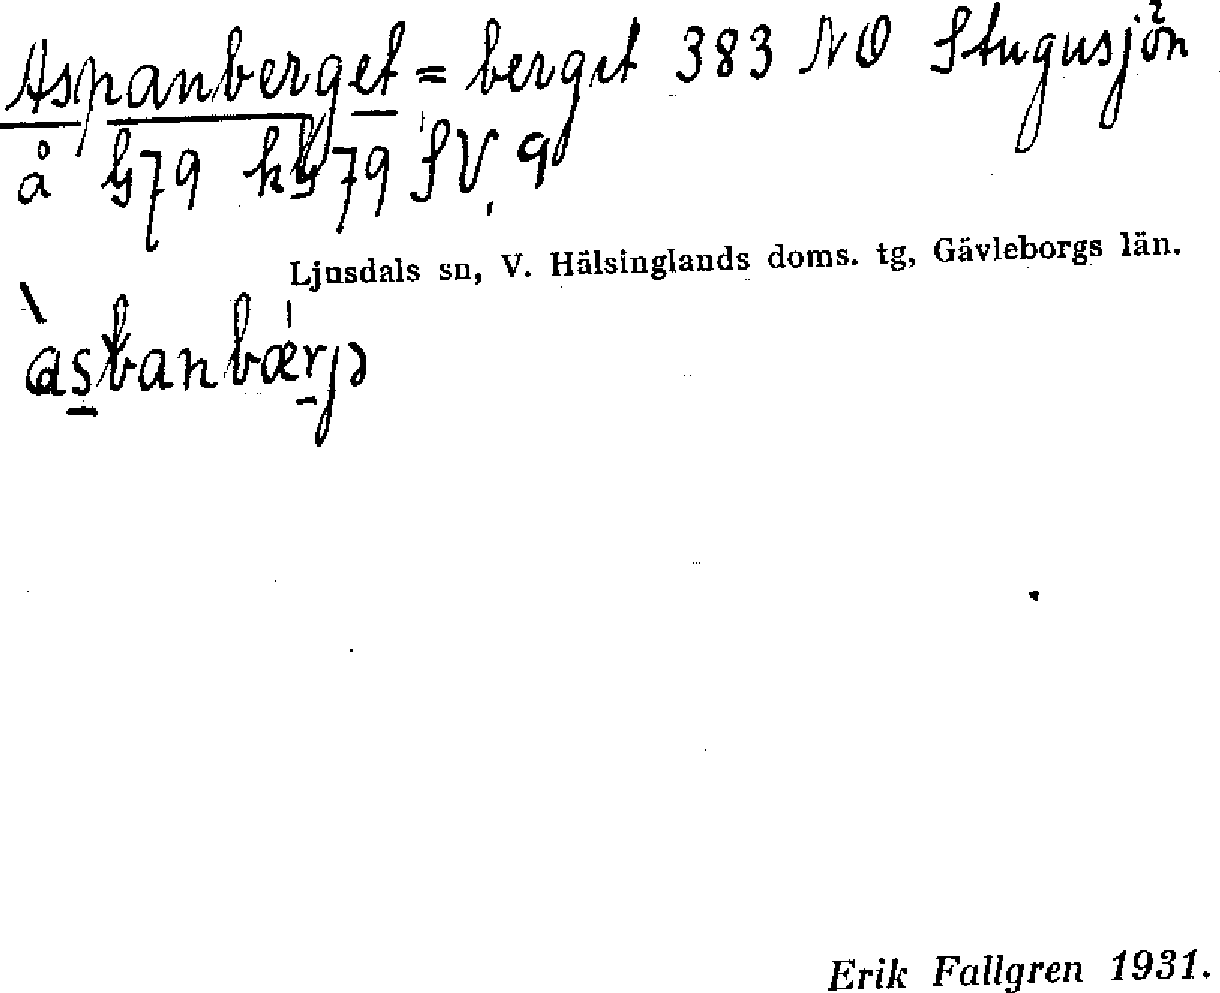 Aspanberget = berget 383 NO Stugusjön
å G79 kG79 SV. 9
Ljusdals sn, V. Hälsinglands doms. tg, Gävleborgs län.
Erik Fallgren 1931.